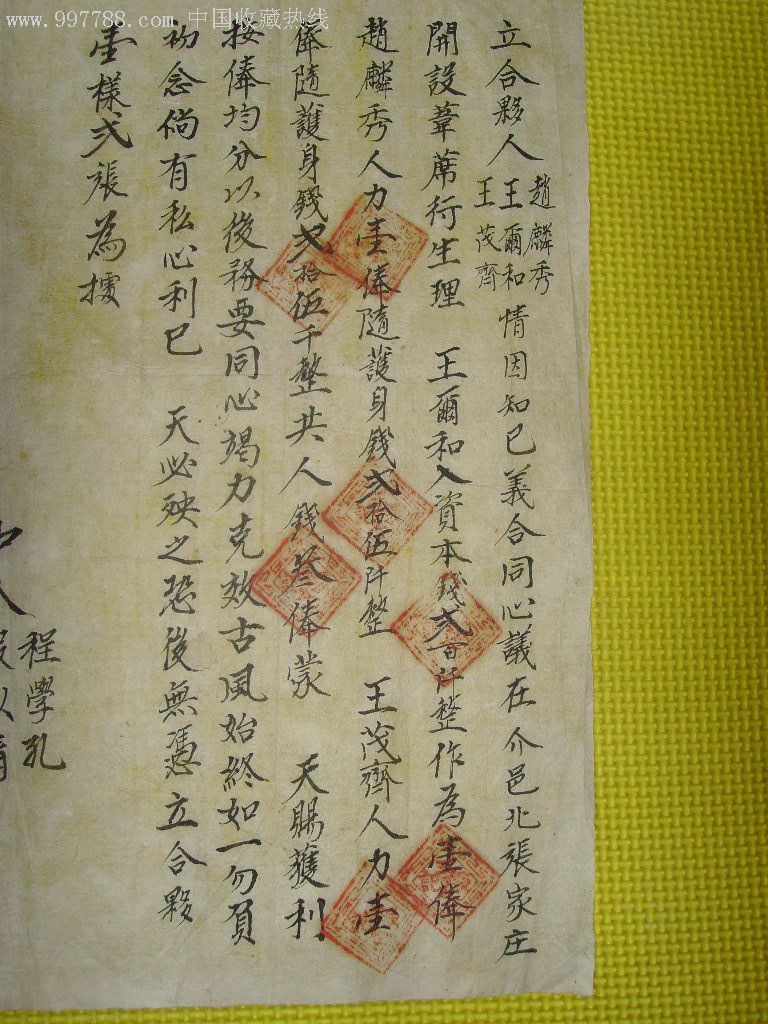 www.997788.com 中国收藏热线
立合夥人
趙麟秀
王爾和
王茂齊
情因知已義合同心議在介邑北張家庄
開設葦蓆行生理 王爾和入資本錢弍百仟整作為壹俸
趙麟秀人力壹俸隨護身錢弍拾伍阡整 王茂齊人力壹
俸隨護身錢弍拾伍千整共人錢叁俸蒙 天賜獲利
按俸均分以後務要同心竭力克效古風始終如一勿負
初念倘有私心利已 天必殃之恐後無憑立合夥
壹樣弍張為據
程學孔